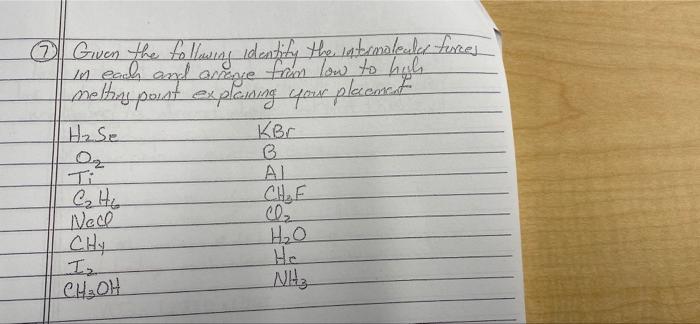 7) Given the following identify the intermolecular forces
in each and arrange from low to high
melting point explaining your placement
H₂Se KBr
O₂ B
Ti Al
C₂H₆ CH₃F
NaCl Cl₂
CH₄ H₂O
I₂ He
CH₃OH NH₃